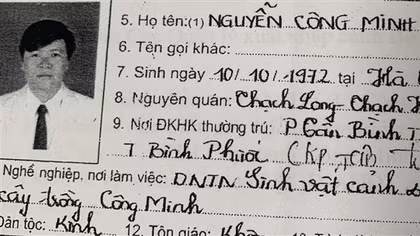 5. Họ tên:(1) NGUYỄN CÔNG MINH
6. Tên gọi khác:
7. Sinh ngày 10/ 10/ 1972 tại Hà
8. Nguyên quán: Chạch Long - Chạch
9. Nơi ĐKHK thường trú: P. Bình
T Bình Phước
Nghề nghiệp, nơi làm việc: DNTN Sinh vật cảnh
cây trồng Công Minh
Dân tộc: Kinh 12. Tôn giáo: